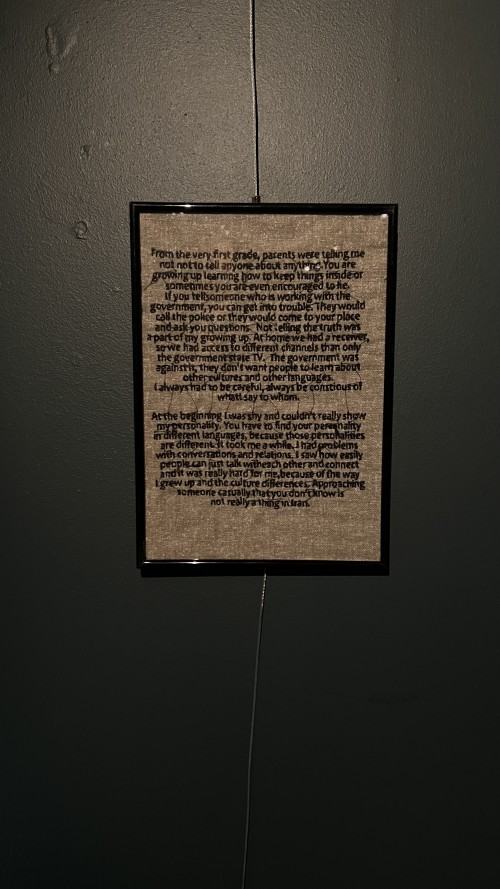 From the very first grade, parents were telling me
not not to tell anyone about anything. You are
growing up learning how to keep things inside or
sometimes you are even encouraged to lie.
If you tell someone who is working with the
government, you can get into trouble. They would
call the police or they would come to your place
and ask you questions. Not telling the truth was
a part of my growing up. At home we had a receiver,
so we had access to different channels than only
the government state TV. The government was
against it, they don't want people to learn about
other cultures and other languages.
I always had to be careful, always be constious of
what I say to whom.
At the beginning I was shy and couldn't really show
my personality. You have to find your personality
in different languages, because those personalities
are different. It took me a while. I had problems
with conversations and relations. I saw how easily
people can just talk with each other and connect
and it was really hard for me, because of the way
I grew up and the culture differences. Approaching
someone casually that you don't know is
not really a thing in Iran.